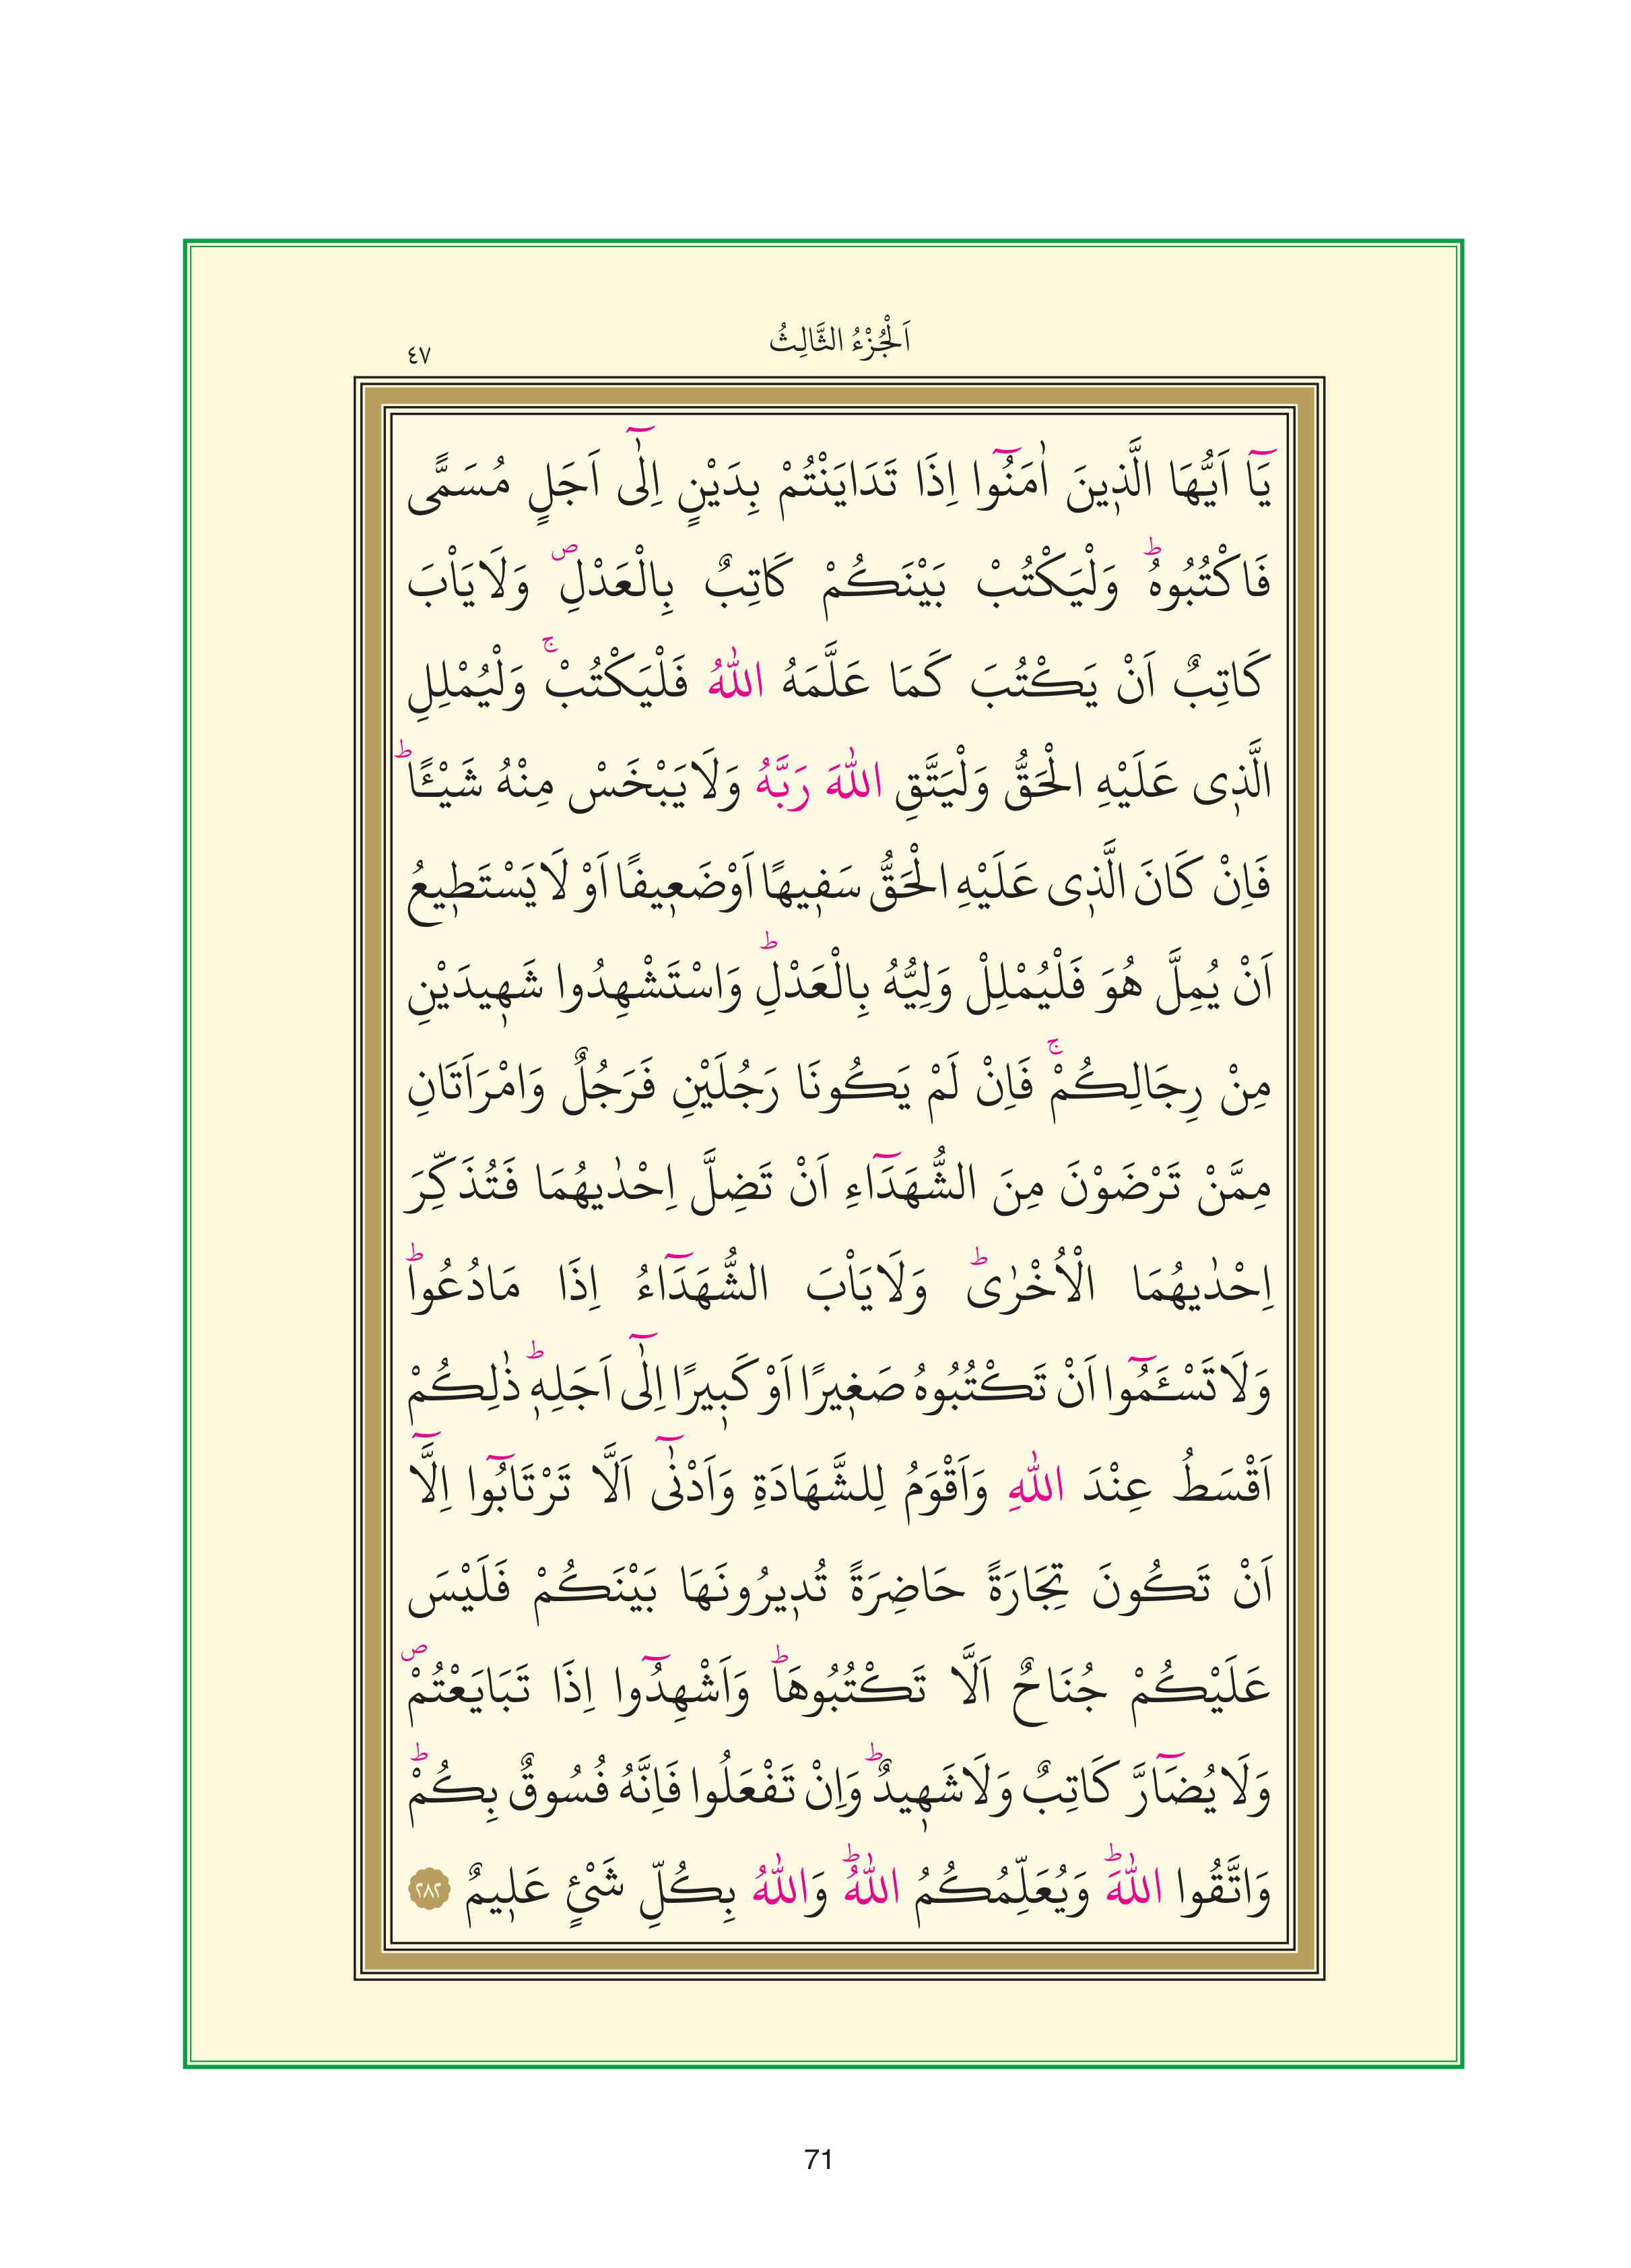 اَلْجُزْءُ الثَّالِثُ
٤٧
يَٓا اَيُّهَا الَّذ۪ينَ اٰمَنُٓوا اِذَا تَدَايَنْتُمْ بِدَيْنٍ اِلٰٓى اَجَلٍ مُسَمًّى
فَاكْتُبُوهُۜ وَلْيَكْتُبْ بَيْنَكُمْ كَاتِبٌ بِالْعَدْلِۖ وَلَا يَاْبَ
كَاتِبٌ اَنْ يَكْتُبَ كَمَا عَلَّمَهُ اللّٰهُ فَلْيَكْتُبْۚ وَلْيُمْلِلِ
الَّذ۪ى عَلَيْهِ الْحَقُّ وَلْيَتَّقِ اللّٰهَ رَبَّهُ وَلَا يَبْخَسْ مِنْهُ شَيْـًٔاۜ
فَاِنْ كَانَ الَّذ۪ى عَلَيْهِ الْحَقُّ سَف۪يهًا اَوْ ضَع۪يفًا اَوْ لَا يَسْتَط۪يعُ
اَنْ يُمِلَّ هُوَ فَلْيُمْلِلْ وَلِيُّهُ بِالْعَدْلِۜ وَاسْتَشْهِدُوا شَه۪يدَيْنِ
مِنْ رِجَالِكُمْۚ فَاِنْ لَمْ يَكُونَا رَجُلَيْنِ فَرَجُلٌ وَامْرَاَتَانِ
مِمَّنْ تَرْضَوْنَ مِنَ الشُّهَدَٓاءِ اَنْ تَضِلَّ اِحْدٰيهُمَا فَتُذَكِّرَ
اِحْدٰيهُمَا الْاُخْرٰىۜ وَلَا يَاْبَ الشُّهَدَٓاءُ اِذَا مَادُعُواۜ
وَلَا تَسْـَٔمُٓوا اَنْ تَكْتُبُوهُ صَغ۪يرًا اَوْ كَب۪يرًا اِلٰٓى اَجَلِه۪ۜ ذٰلِكُمْ
اَقْسَطُ عِنْدَ اللّٰهِ وَاَقْوَمُ لِلشَّهَادَةِ وَاَدْنٰٓى اَلَّا تَرْتَابُٓوا اِلَّٓا
اَنْ تَكُونَ تِجَارَةً حَاضِرَةً تُد۪يرُونَهَا بَيْنَكُمْ فَلَيْسَ
عَلَيْكُمْ جُنَاحٌ اَلَّا تَكْتُبُوهَاۜ وَاَشْهِدُٓوا اِذَا تَبَايَعْتُمْۖ
وَلَا يُضَٓارَّ كَاتِبٌ وَلَا شَه۪يدٌۜ وَاِنْ تَفْعَلُوا فَاِنَّهُ فُسُوقٌ بِكُمْۜ
وَاتَّقُوا اللّٰهَۜ وَيُعَلِّمُكُمُ اللّٰهُۜ وَاللّٰهُ بِكُلِّ شَىْءٍ عَل۪يمٌ ٢٨٢
71